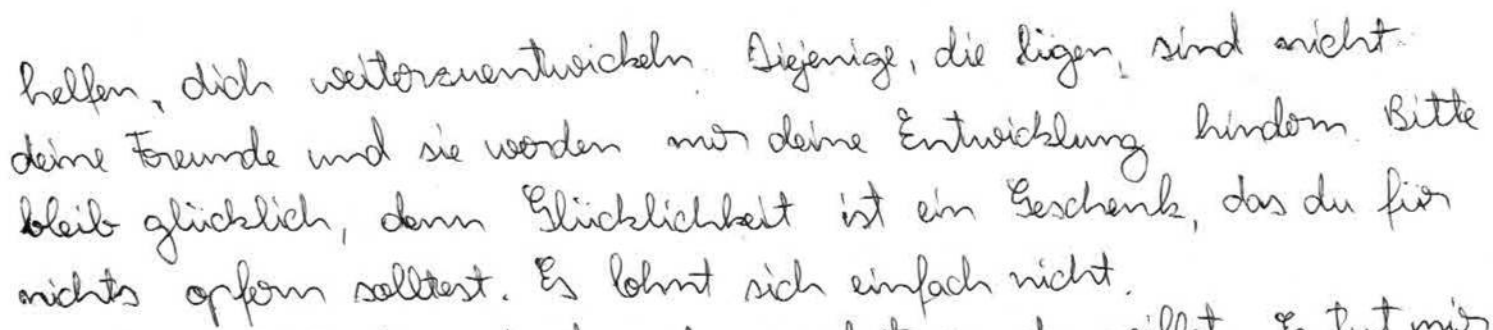 helfen, dich weiterzuentwickeln. Diejenige, die lügen, sind nicht
deine Freunde und sie werden nur deine Entwicklung hindern. Bitte
bleib glücklich, denn Glücklichkeit ist ein Geschenk, das du für
nichts opfern solltest. Es lohnt sich einfach nicht.
Es tut mir